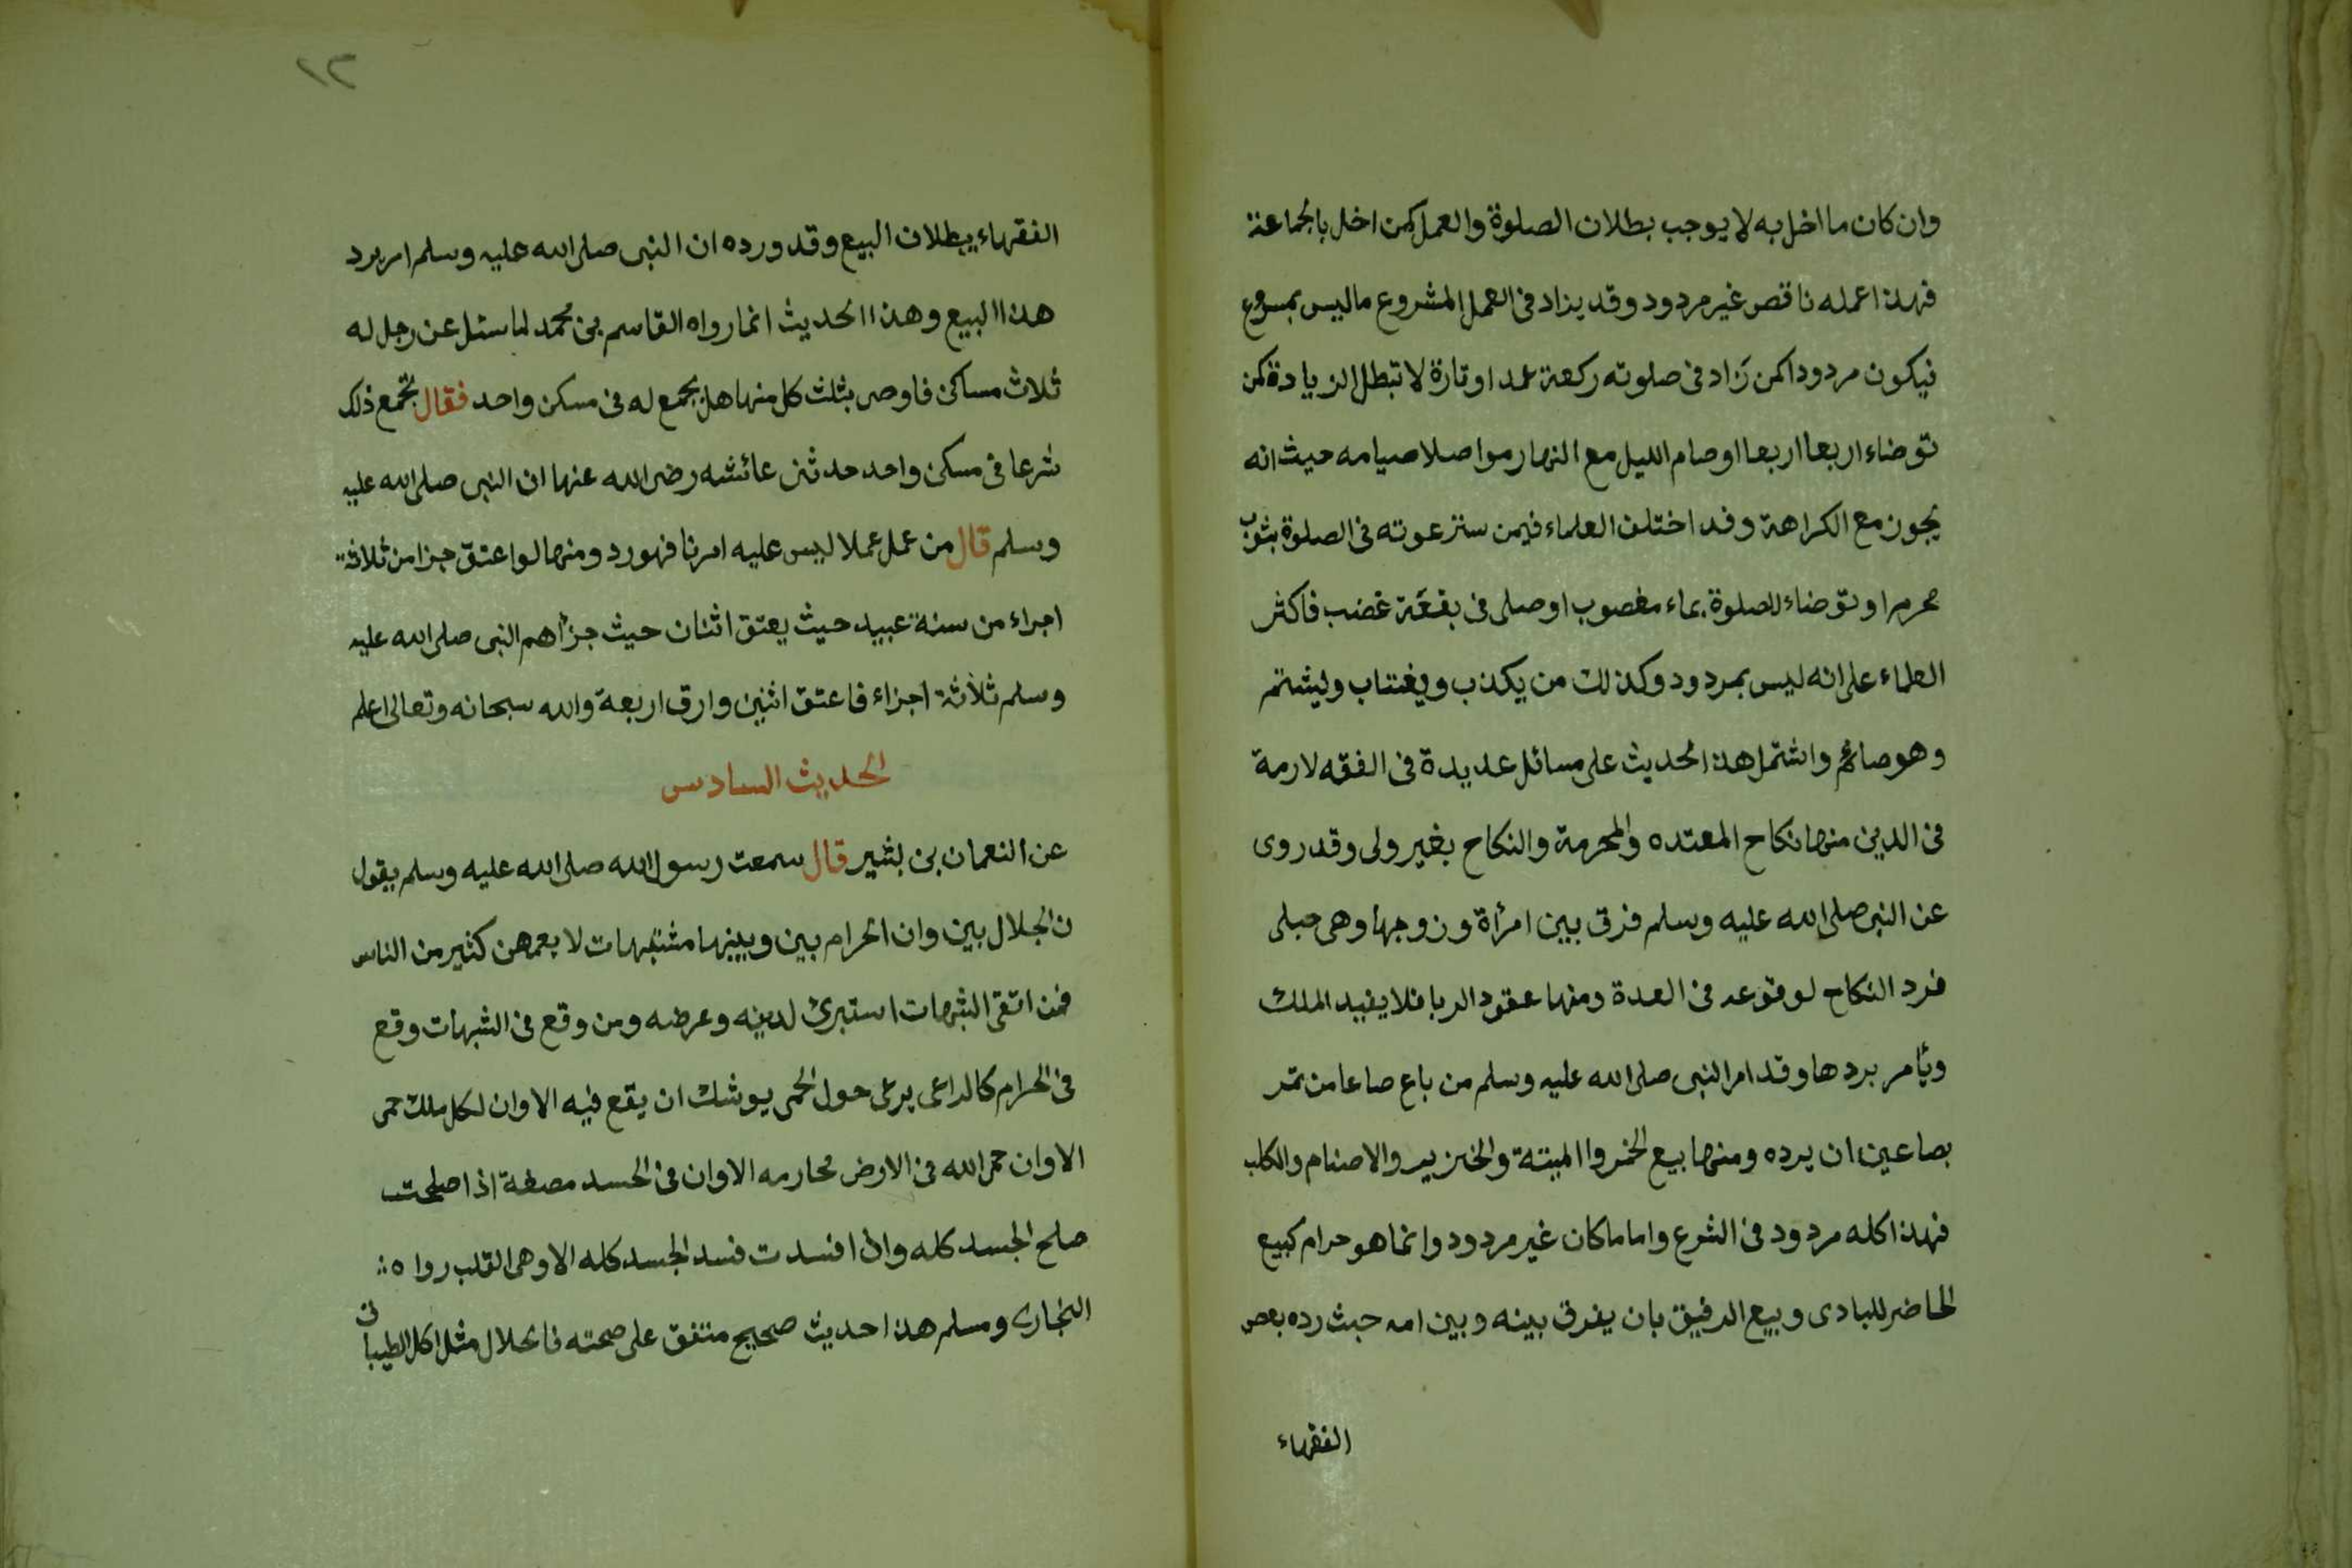 وان كان ما اخل به لا يوجب بطلان الصلوة والعمل كمن اخل بالجماعة
فهذا عمله ناقص غير مردود وقد يزاد فى العمل المشروع ما ليس بمشروع
فيكون مردودا كمن زاد فى صلوته ركعة عمدا وتارة لا تبطل الزيادة كمن
توضاء اربعا اربعا او صام الليل مع النهار مواصلا صيامه حيث انه
يجوز مع الكراهة وقد اختلف العلماء فيمن ستر عوته فى الصلوة بثوب
محرم او توضاء للصلوة بماء مغصوب او صلى فى بقعة غضب فاكثر
العلماء على انه ليس بمردود وكذلك من يكذب ويغتاب ويشتم
وهو صائم واشتمل هذا الحديث على مسائل عديدة فى الفقه لازمة
فى الدين منها نكاح المعتده والمحرمة والنكاح بغير ولى وقد روى
عن النبى صلى الله عليه وسلم فرق بين امرأة وزوجها وهى حبلى
فرد النكاح لوقوعه فى العدة ومنها عقود الربا فلا يفيد الملك
ويأمر بردها وقد امر النبى صلى الله عليه وسلم من باع صاعا من تمر
بصاعين ان يرده ومنها بيع الخمر واالميتة والخنزير والاصنام والكلب
فهذا كله مردود فى الشرع واما ما كان غير مردود وانما هو حرام كبيع
الحاضر للبادى وبيع الرقيق بان يفرق بينه وبين امه حيث رده بعض
الفقهاء
١٣
الفقهاء ببطلان البيع وقد ورده ان النبى صلى الله عليه وسلم امر برد
هذا البيع وهذا الحديث انما رواه القاسم بن محمد لما سئل عن رجل له
ثلاث مساكن فاوصى بثلث كل منها هل يجمع له فى مسكن واحد فقال تجمع ذلك
شرعا فى مسكن واحد حدثنى عائشه رضى الله عنها ان النبى صلى الله عليه
وسلم قال من عمل عملا ليس عليه امرنا فهو رد ومنها لو اعتق جزا من ثلاثة
اجراء من ستة عبيد حيث يعتق اثنان حيث جزأهم النبى صلى الله عليه
وسلم ثلاثة اجزاء فاعتق اثنين وارق اربعة والله سبحانه وتعالى اعلم
الحديث السادس
عن النعمان بن بشير قال سمعت رسول الله صلى الله عليه وسلم يقول
ن الحلال بين وان الحرام بين وبينهما مشتبهات لا يعمهن كثير من الناس
فمن اتقى الشبهات استبرئ لدينه وعرضه ومن وقع فى الشبهات وقع
فى الحرام كالراعى يرعى حول الحمى يوشك ان يقع فيه الا وان لكل ملك حمى
الا وان حمى الله فى الارض محارمه الا وان فى الجسد مضغة اذا صلحت
صلح الجسد كله واذا فسدت فسد الجسد كله الا وهى القلب رواه
البخارى ومسلم هذا حديث صحيح متفق على صحته فالحلال مثل اكل الطيبات